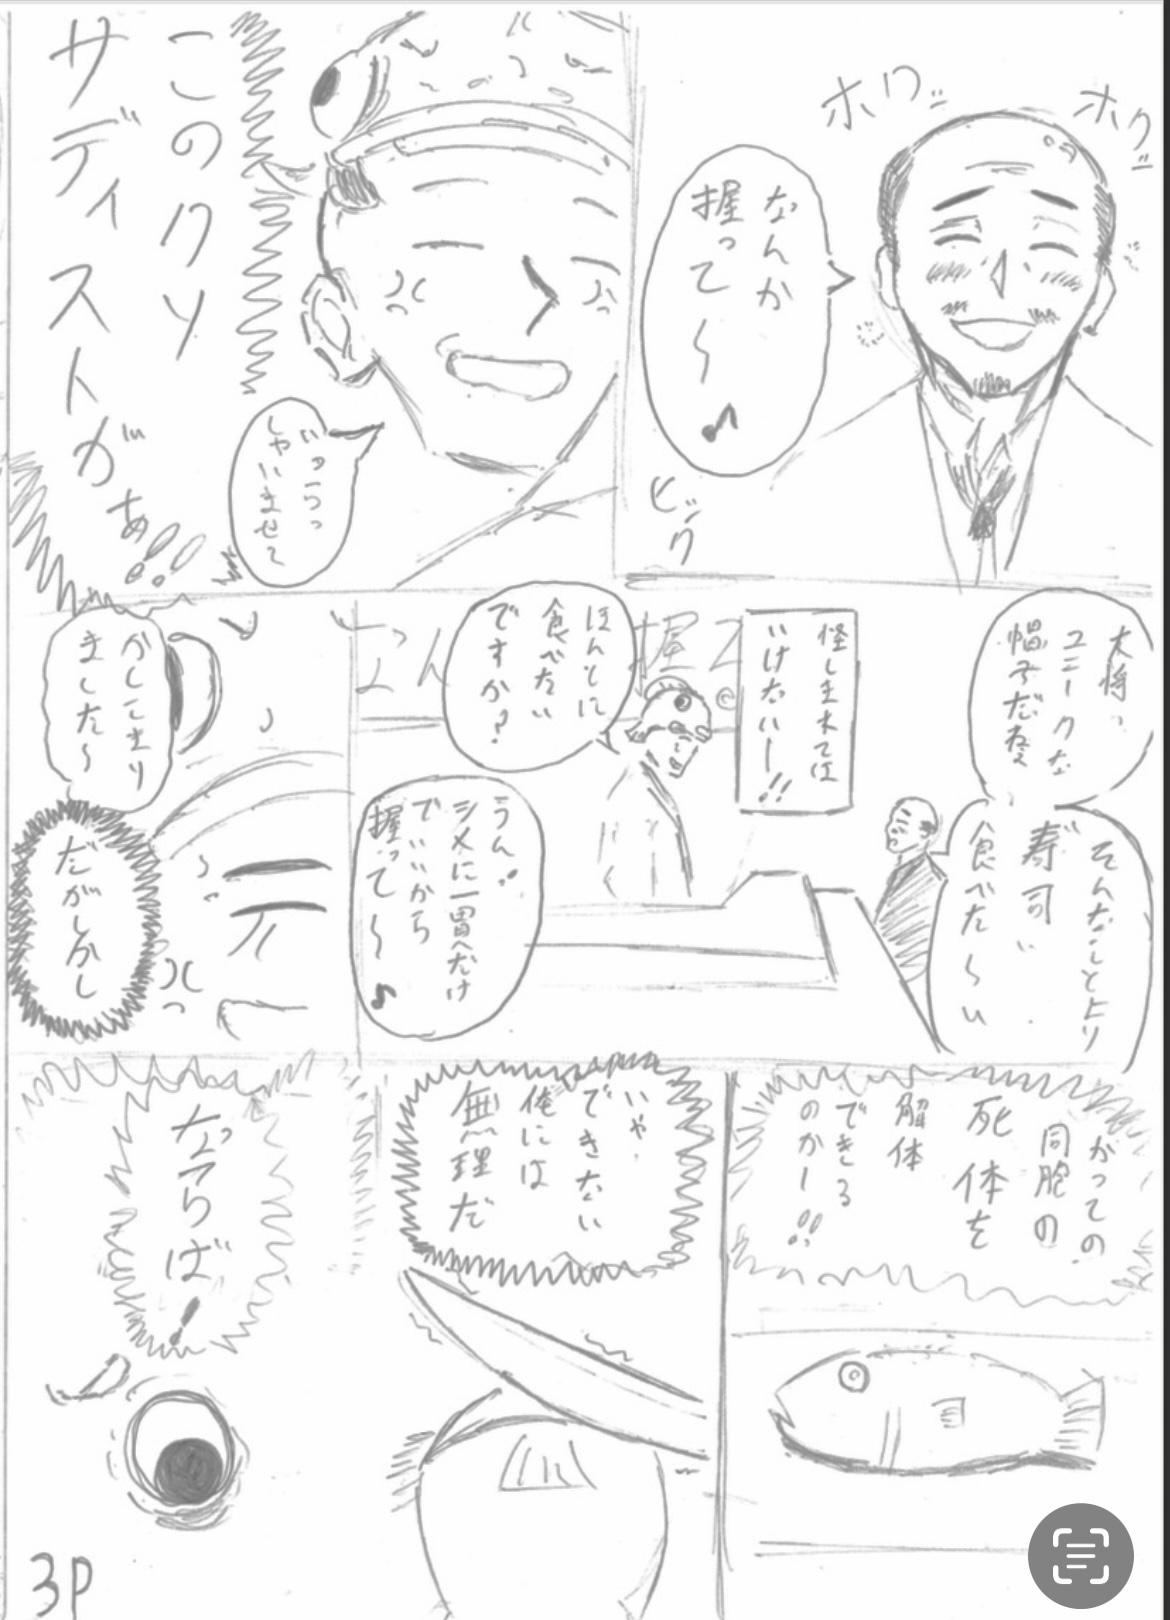 ホワッ
ホクッ
なんか
握って〜♪
ヒック
このクソ
サディストがぁ!!
いらっ
しゃいませ〜
大将、
ユニークな
帽子だねぇ
そんなことより
寿司い
食べた〜い
怪しまれては
いけない!!
ほんとに
食べたい
ですか?
うん!
シメに一貫だけ
でいいから
握って〜♪
かしこまり
ました〜
だがしかし
かつての
同胞の
死体を
解体
できる
のかー!!
いや、
できない
俺には
無理だ
ならば!
3P